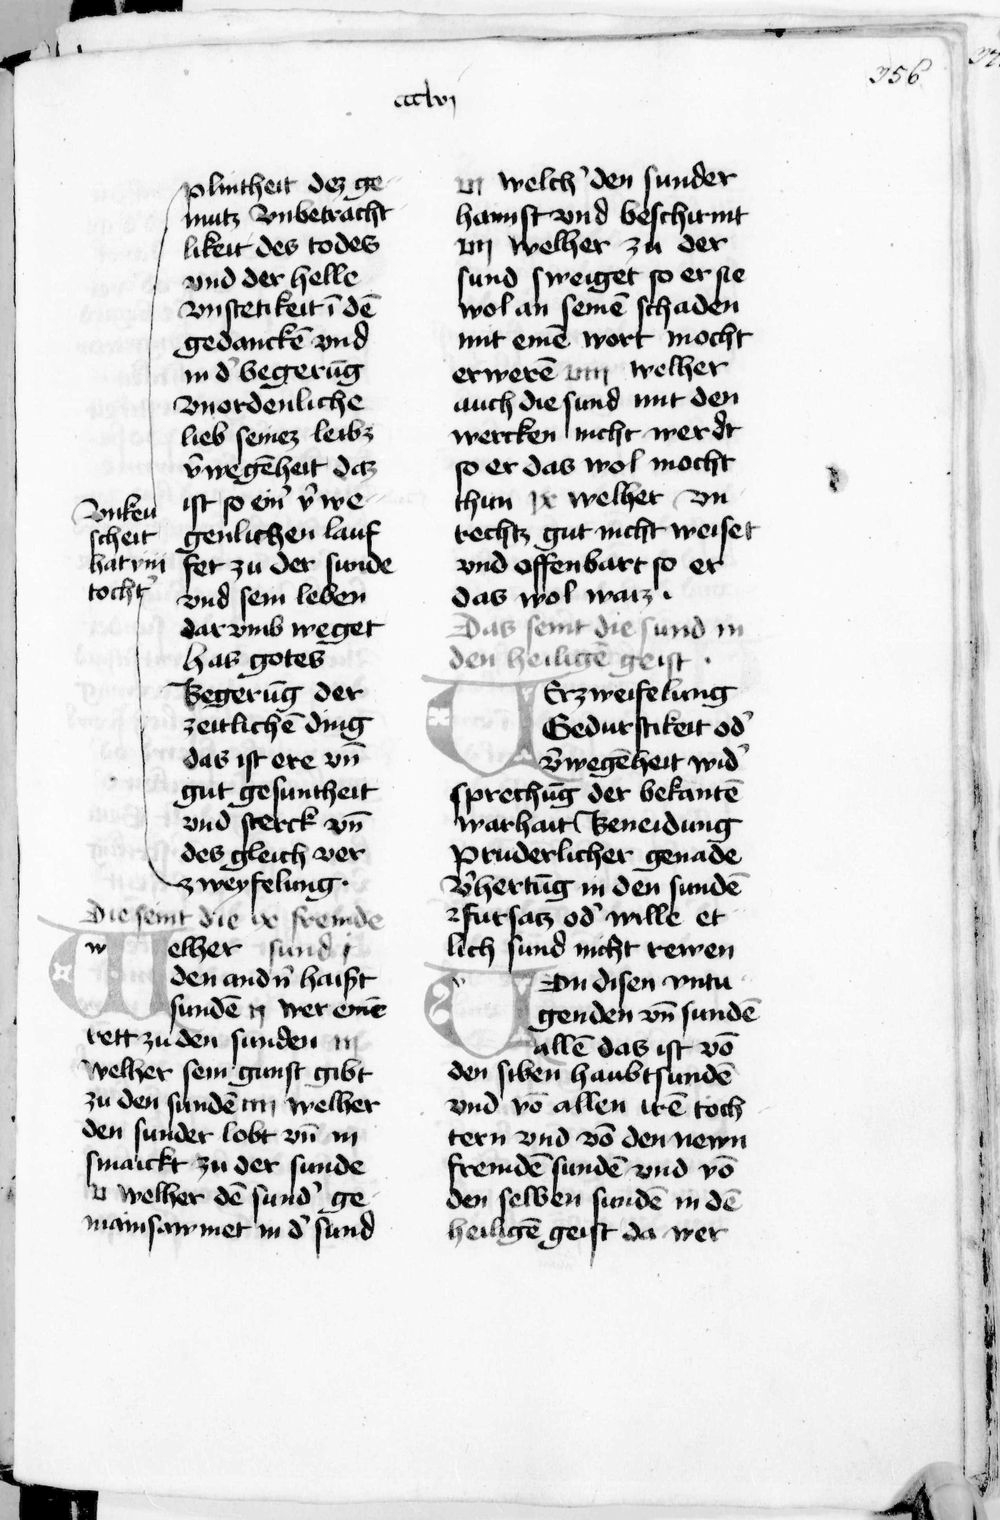 356
ccclvj
plintheit dez ge
mutz vnbetracht
likeit des todes
vnd der helle
vnstetikeit ī dē
gedanckē vnd
in d' begerūg
vnordenliche
lieb seinez leibz
v'wegēheit daz
ist so ein' v'we
genlichen lauf
fet zu der sunde
vnd sein leben
dar vmb weget
has gotes
Begerūg der
zeitlichē ding
das ist ere vn̄
gut gesuntheit
vnd sterck vn̄
des gleich ver
zweyfelung ·
Vnkeu
scheit
hat viii
tocht'
Die seint die ix fremde
Welher sund j
den andn' haist
sundē ij wer einē
rett zu den sunden iij
welher sein gunst gibt
zu den sundē iiij welher
den sunder lobt vn̄ in
smaickt zu der sunde
v welher dē sund' ge
mainsammet in d' sund
vi welch' den sunder
haimst vnd beschirmt
vij welher zu der
sund sweiget so er sie
wol an seinē schaden
mit einē wort mocht
erwerē viij welher
auch die sund mit den
wercken nicht werdt
so er das wol mocht
thun ix welher vn
rechtz gut nicht weiset
vnd offenbart so er
das wol waiz ·
Das seint die sund in
den heiligē geist ·
VErzweifelung
Gedurstikeit od'
v'wegēheit wid'
sprechūg der bekantē
warhait Beneidung
Pruderlicher genade
v'hertūg in den sundē
fursatz od' wille et
lich sund nicht rewen
VOn disen vntu
genden vn̄ sundē
allē das ist vō
den siben haubtsundē
vnd vō allen irē toch
tern vnd vō den newn
fremdē sundē vnd vō
den selben sundē in dē
heiligē geist da wer